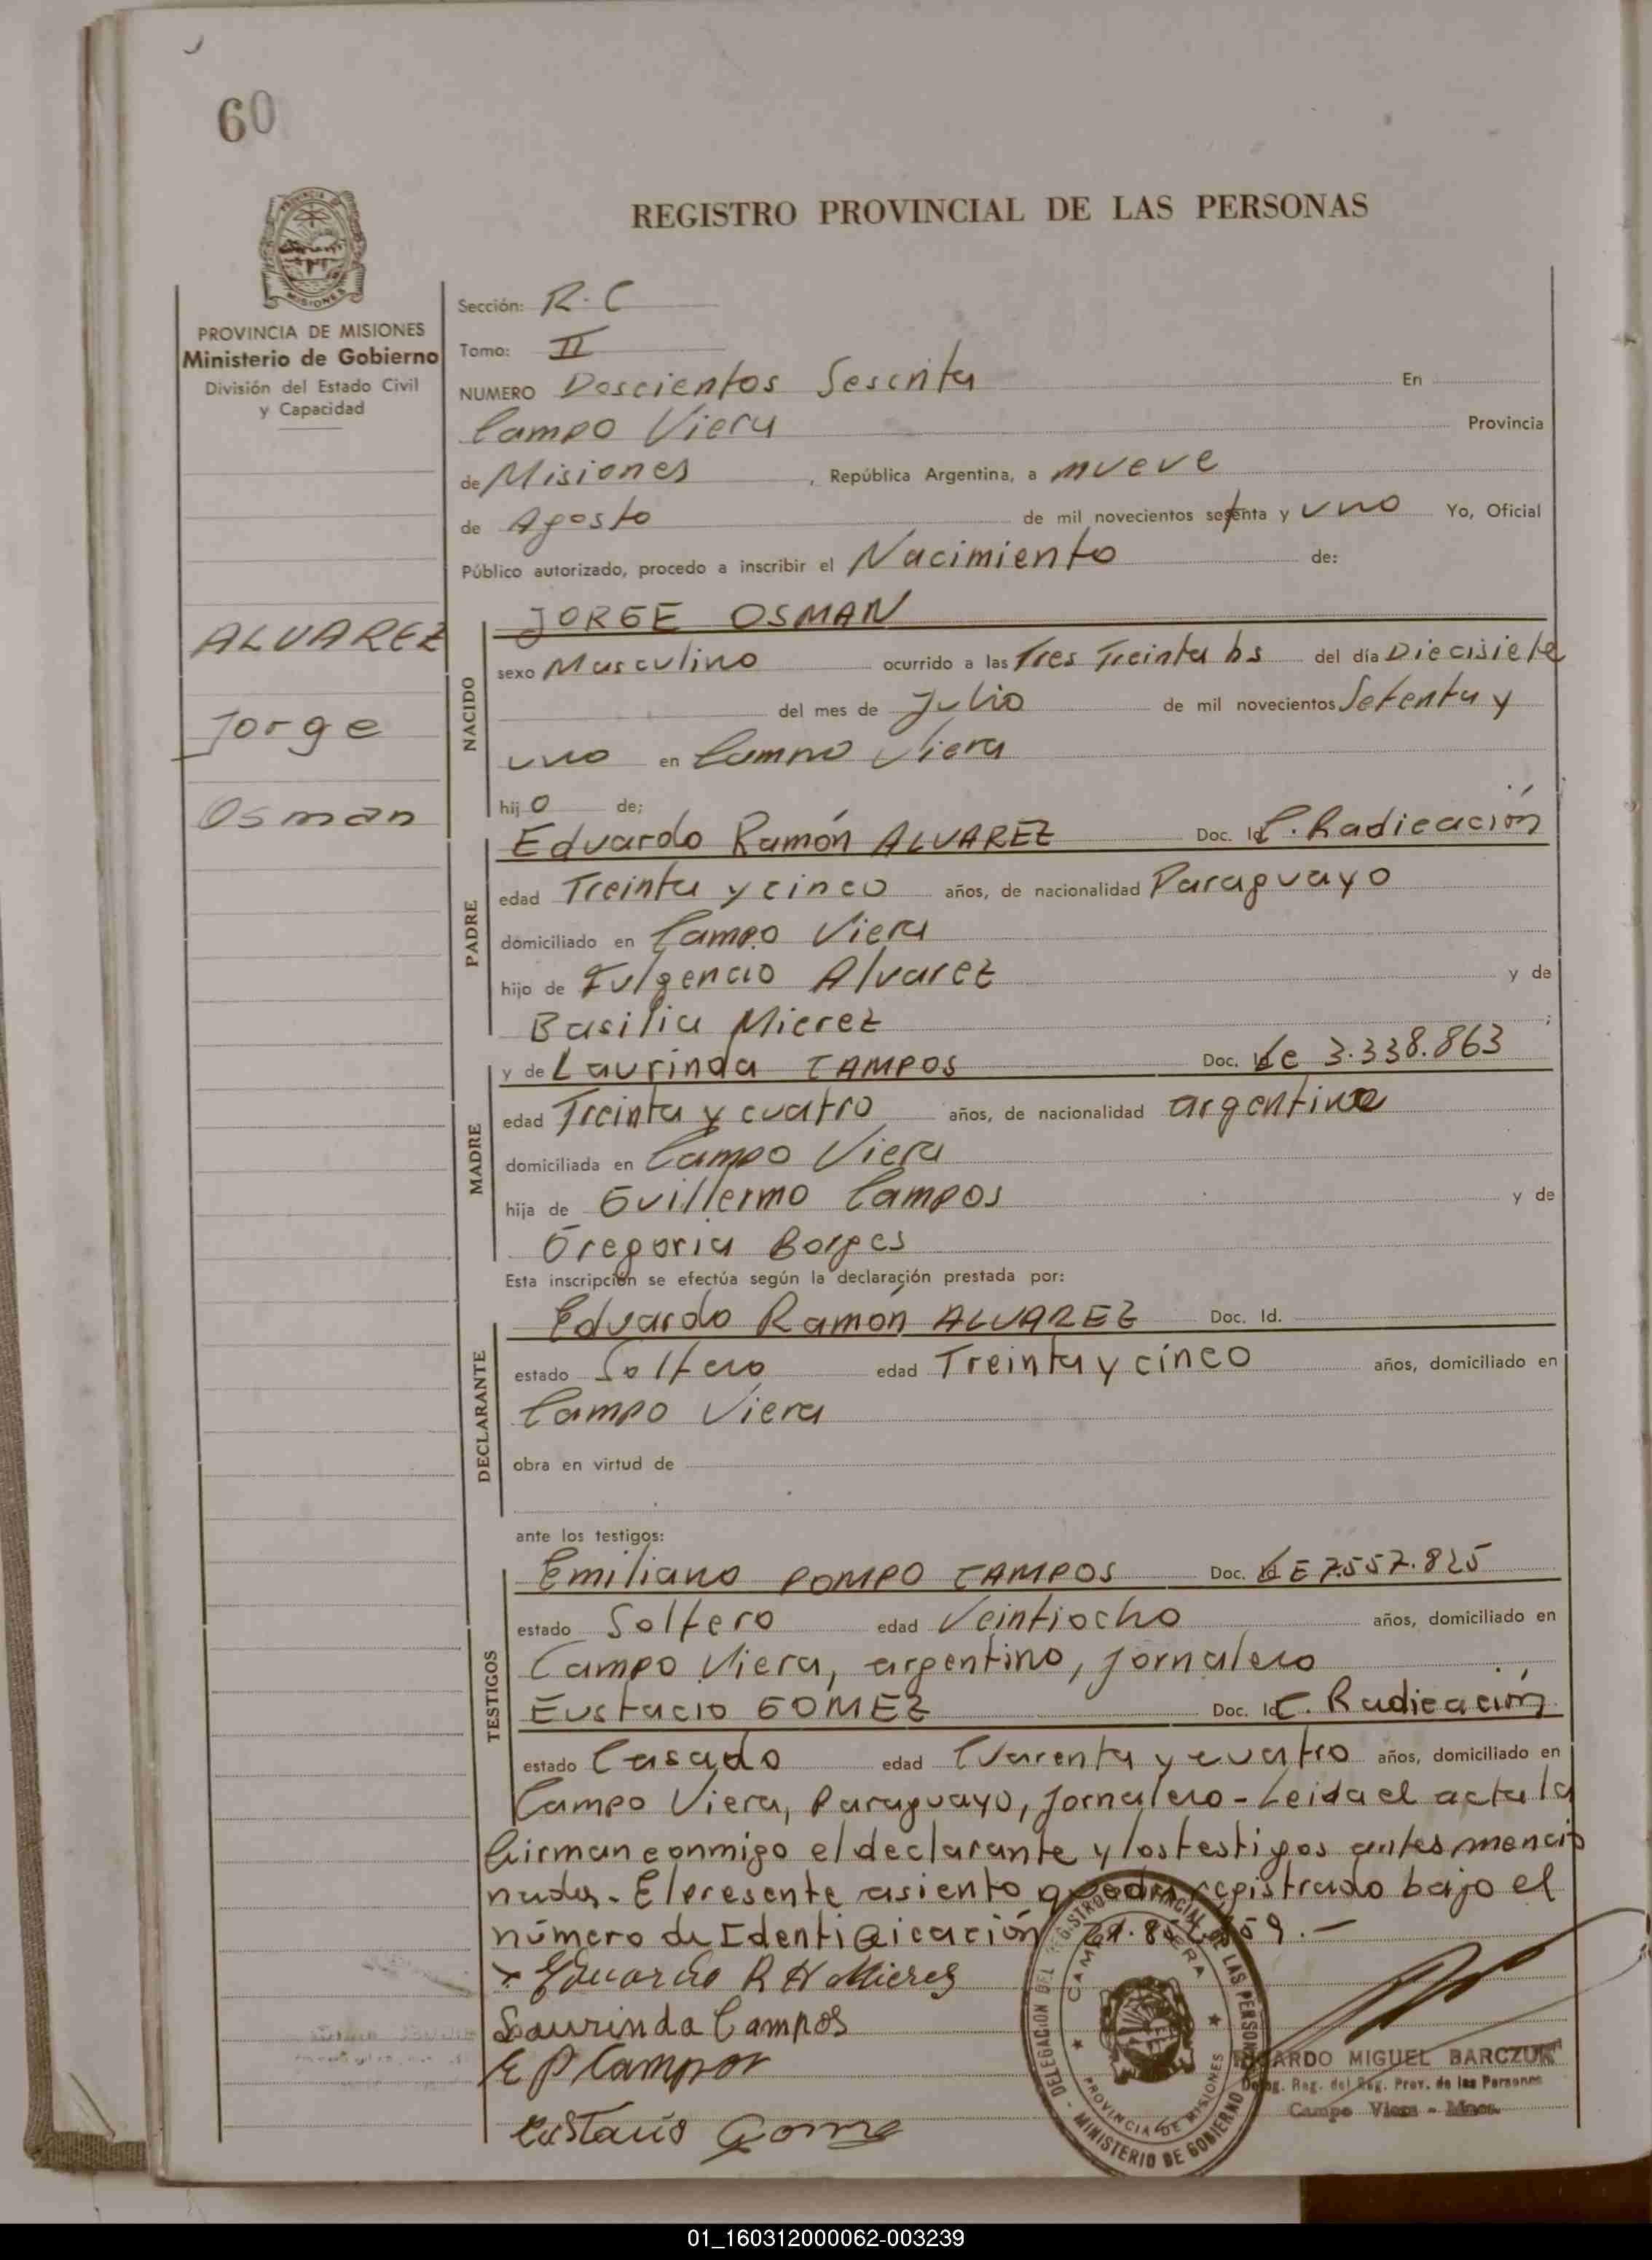 60
REGISTRO PROVINCIAL DE LAS PERSONAS
MISIONES
PROVINCIA DE MISIONES
Ministerio de Gobierno
División del Estado Civil
y Capacidad
ALVAREZ
Jorge
Osman
Sección: R.C
Tomo: II
NUMERO Doscientos Sesenta En
Campo Viera Provincia
de Misiones, República Argentina, a nueve
de Agosto de mil novecientos setenta y uno Yo, Oficial
Público autorizado, procedo a inscribir el Nacimiento de:
NACIDO
JORGE OSMAN
sexo Masculino ocurrido a las Tres Treinta hs del día Diecisiete
del mes de Julio de mil novecientos Setenta y
uno en Campo Viera
hijo de;
PADRE
Eduardo Ramón ALVAREZ Doc. Id C. Radicación
edad Treinta y cinco años, de nacionalidad Paraguayo
domiciliado en Campo Viera
hijo de Fulgencio Alvarez y de
Basilia Mierez ;
MADRE
y de Laurinda CAMPOS Doc. Lc 3.338.863
edad Treinta y cuatro años, de nacionalidad argentina
domiciliada en Campo Viera
hija de Guillermo Campos y de
Gregoria Borges
Esta inscripción se efectúa según la declaración prestada por:
DECLARANTE
Eduardo Ramón ALVAREZ Doc. Id.
estado Soltero edad Treinta y cinco años, domiciliado en
Campo Viera
obra en virtud de
ante los testigos:
TESTIGOS
Emiliano POMPO CAMPOS Doc. LE 7.557.825
estado Soltero edad Veintiocho años, domiciliado en
Campo Viera, argentino, jornalero
Eustacio GOMEZ Doc. Id C. Radicación
estado Casado edad Cuarenta y cuatro años, domiciliado en
Campo Viera, Paraguayo, Jornalero - Leida el acta la
firman conmigo el declarante y los testigos antes mencio
nados. El presente asiento queda registrado bajo el
número de Identificación
Eduardo R A Mierez
Laurinda Campos
E P Campos
Eustacio Gomez
DELEGACION DEL REGISTRO PROVINCIAL DE LAS PERSONAS
CAMPO VIERA
PROVINCIA DE MISIONES
MINISTERIO DE GOBIERNO
RICARDO MIGUEL BARCZUK
Deleg. Reg. del Reg. Prov. de las Personas
Campo Viera - Mnes.
01_160312000062-003239